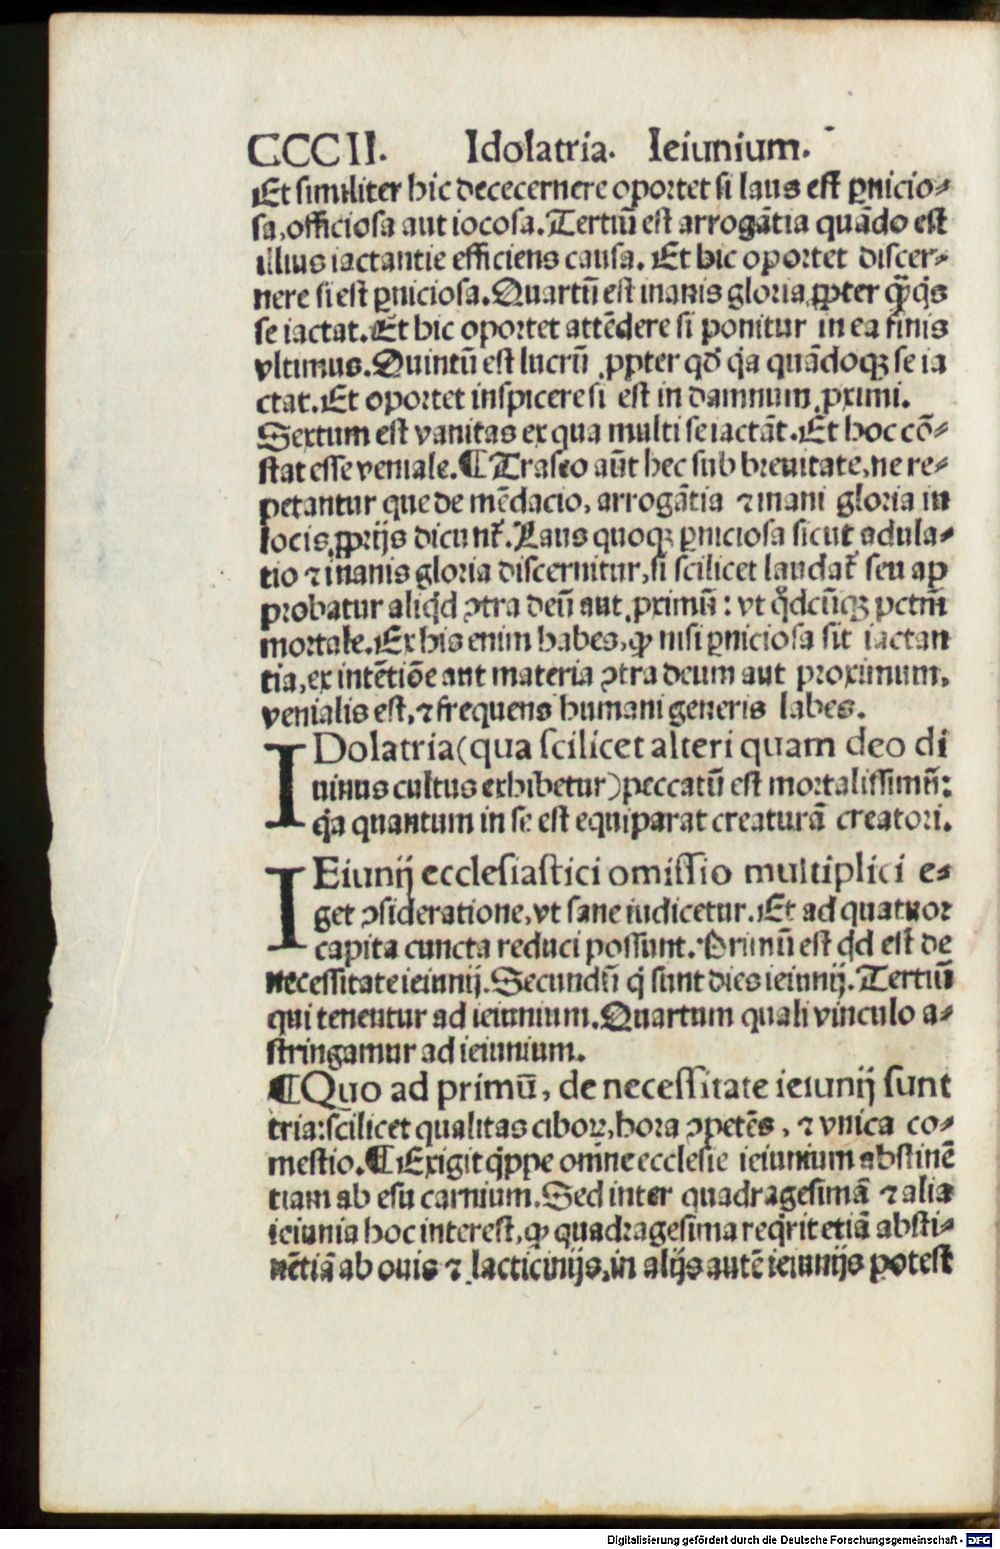 CCCII. Idolatria. Ieiunium.
Et similiter hic dececernere oportet si laus est ꝑnicio⸗
sa, officiosa aut iocosa. Tertiū est arrogātia quādo est
illius iactantie efficiens causa. Et hic oportet discer⸗
nere si est ꝑniciosa. Quartū est inanis gloria ꝓpter quā q̇s
se iactat. Et hic oportet attēdere si ponitur in ea finis
vltimus. Quintū est lucrū ꝓpter qđ q̇a quādoqꝫ se ia
ctat. Et oportet inspicere si est in damnum ꝓximi.
Sextum est vanitas ex qua multi se iactāt. Et hoc cō⸗
stat esse veniale. ¶ Trāseo aūt hec sub breuitate, ne re⸗
petantur que de mēdacio, arrogātia ⁊ inani gloria in
locis ꝓprijs dicunt᷑. Laus quoqꝫ ꝑniciosa sicut adula⸗
tio ⁊ inanis gloria discernitur, si scilicet laudat᷑ seu ap
probatur aliq̇d ꝯtra deū aut ꝓximū: vt q̇dcūqꝫ pctm̄
mortale. Ex his enim habes, ꝙ nisi ꝑniciosa sit iactan
tia, ex intētiōe aut materia ꝯtra deum aut proximum,
venialis est, ⁊ frequens humani generis labes.
IDolatria (qua scilicet alteri quam deo di
uinus cultus exhibetur) peccatū est mortalissimū:
q̇a quantum in se est equiparat creaturā creatori.
IEiunij ecclesiastici omissio multiplici e⸗
get ꝯsideratione, vt sane iudicetur. Et ad quatuor
capita cuncta reduci possunt. Primū est qd est de
necessitate ieiunij. Secundū q̇ sunt dies ieiunij. Tertiū
qui tenentur ad ieiunium. Quartum quali vinculo a⸗
stringamur ad ieiunium.
¶ Quo ad primū, de necessitate ieiunij sunt
tria: scilicet qualitas ciboꝝ, hora ꝯpetēs, ⁊ vnica co⸗
mestio. ¶ Exigit q̇ppe omne ecclesie ieiunium abstinē
tiam ab esu carnium. Sed inter quadragesimā ⁊ alia
ieiunia hoc interest, ꝙ quadragesima req̇rit etiā absti⸗
nētiā ab ouis ⁊ lacticinijs, in alijs autē ieiunijs potest
Digitalisierung gefördert durch die Deutsche Forschungsgemeinschaft - DFG